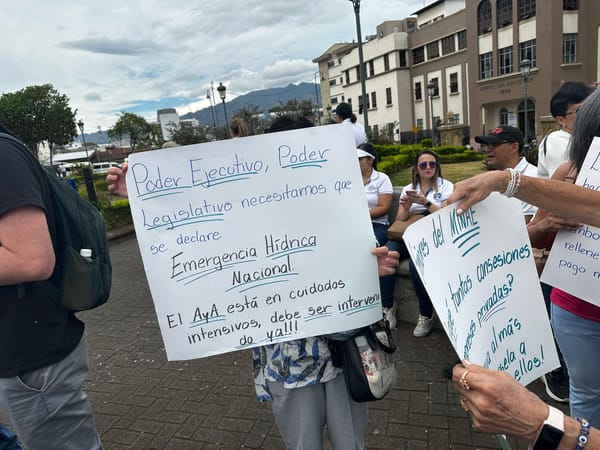 Poder Ejecutivo, Poder
Legislativo necesitamos que
se declare
Emergencia Hídrica
Nacional.
El AyA está en cuidados
intensivos, debe ser interveni
do ya!!!
del MINAE
tantas consesiones
privadas?
al más
ellos!
rellene
pago
HOSPITAL SAN